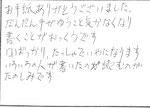 お手紙ありがとうございました。
だんだん手がゆうこと気かなくなり
書くことがおっくうです
口ばっかり、たっしゃでいやになります
いろいろの人が書いたのが読むのが
たのしみです